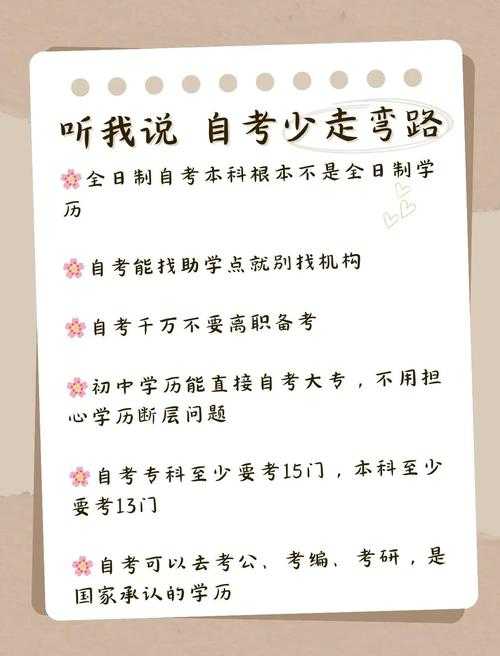 听我说 自考少走弯路
全日制自考本科根本不是全日制学
历
自考能找助学点就别找机构
自考千万不要离职备考
初中学历能直接自考大专，不用担
心学历断层问题
自考专科至少要考15门，本科至少
要考13门
自考可以去考公、考编、考研，是
国家承认的学历